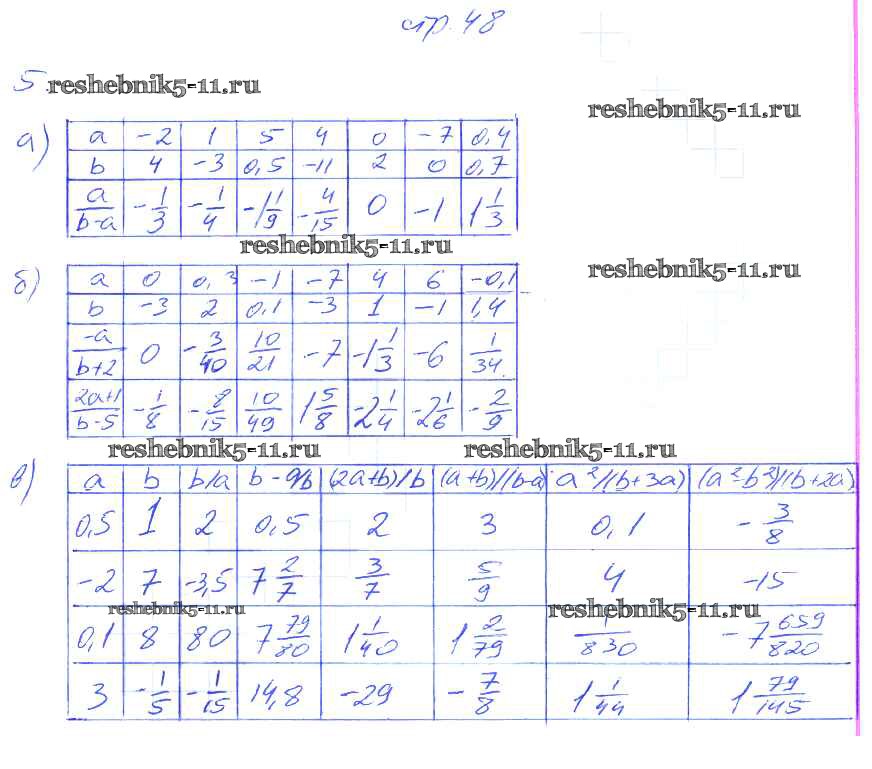 стр. 48
5 reshebnik5-11.ru
reshebnik5-11.ru
а)
a -2 1 5 4 0 -7 0,4
b 4 -3 0,5 -11 2 0 0,7
a/(b-a) -1/3 -1/4 -1 1/9 -4/15 0 -1 1 1/3
reshebnik5-11.ru
reshebnik5-11.ru
б)
a 0 0,3 -1 -7 4 6 -0,1
b -3 2 0,1 -3 1 -1 1,4
-a/(b+2) 0 -3/40 10/21 -7 -1 1/3 -6 1/34
(2a+1)/(b-5) -1/8 -8/15 10/49 1 5/8 -2 1/4 -2 1/6 -2/9
reshebnik5-11.ru reshebnik5-11.ru
в)
a b b/a b-a/b (2a+b)/b (a+b)/(b-a) a²/(b+3a) (a²-b²)/(b+2a)
0,5 1 2 0,5 2 3 0,1 -3/8
-2 7 -3,5 7 2/7 3/7 5/9 4 -15
reshebnik5-11.ru reshebnik5-11.ru
0,1 8 80 7 79/80 1 1/40 1 2/79 1/830 -7 659/820
3 -1/5 -1/15 14,8 -29 -7/8 1 1/44 1 79/145